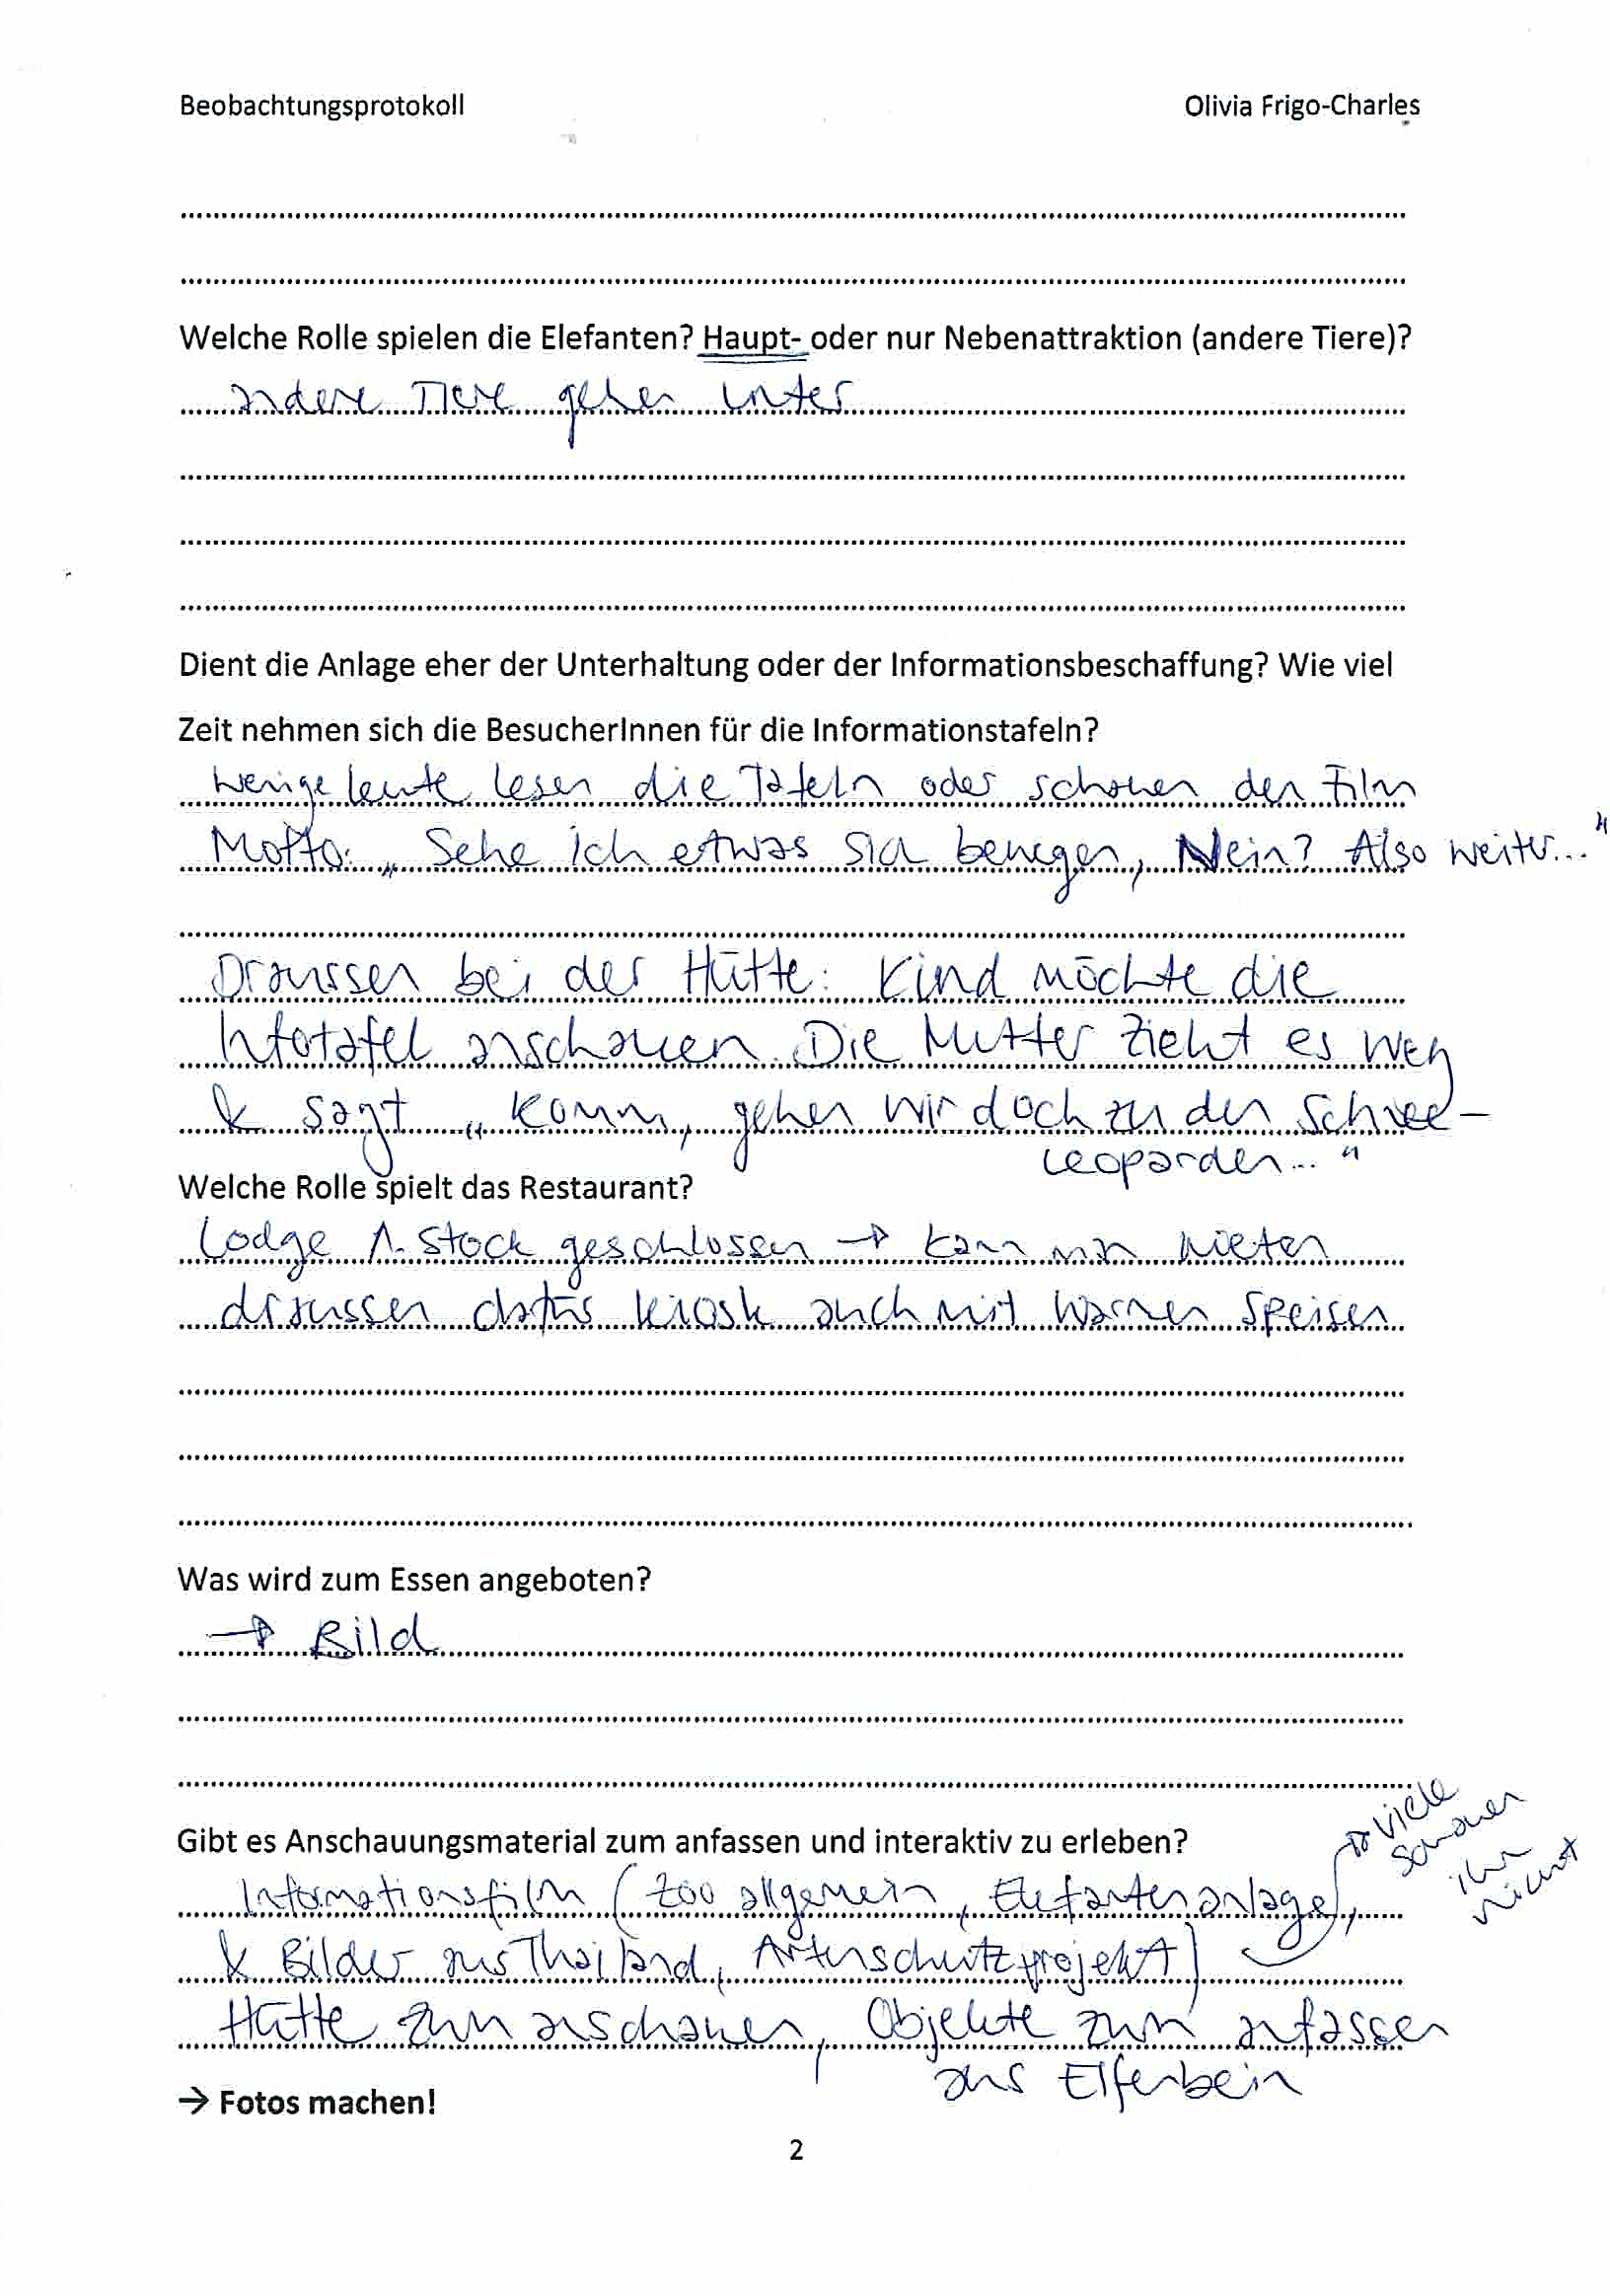 Beobachtungsprotokoll Olivia Frigo-Charles
Welche Rolle spielen die Elefanten? Haupt- oder nur Nebenattraktion (andere Tiere)?
andere Tiere gehen unter
Dient die Anlage eher der Unterhaltung oder der Informationsbeschaffung? Wie viel
Zeit nehmen sich die BesucherInnen für die Informationstafeln?
wenige Leute lesen die Tafeln oder schauen den Film
Motto: „Sehe ich etwas sich bewegen, Nein? Also weiter..."
Draussen bei der Hütte: Kind möchte die
Infotafel anschauen. Die Mutter zieht es weg
& sagt „Komm, gehen wir doch zu den Schnee-
leoparden..."
Welche Rolle spielt das Restaurant?
Lodge 1. Stock geschlossen → kann man mieten
draussen dafür Kiosk auch mit warmen Speisen
Was wird zum Essen angeboten?
→ Bild
Gibt es Anschauungsmaterial zum anfassen und interaktiv zu erleben?
→ viele
schauen
ihn
nicht
Informationsfilm (Zoo allgemein, Elefantenanlage,
& Bilder aus Thailand, Artenschutzprojekt)
Hütte zum anschauen, Objekte zum anfassen
aus Elfenbein
→ Fotos machen!
2